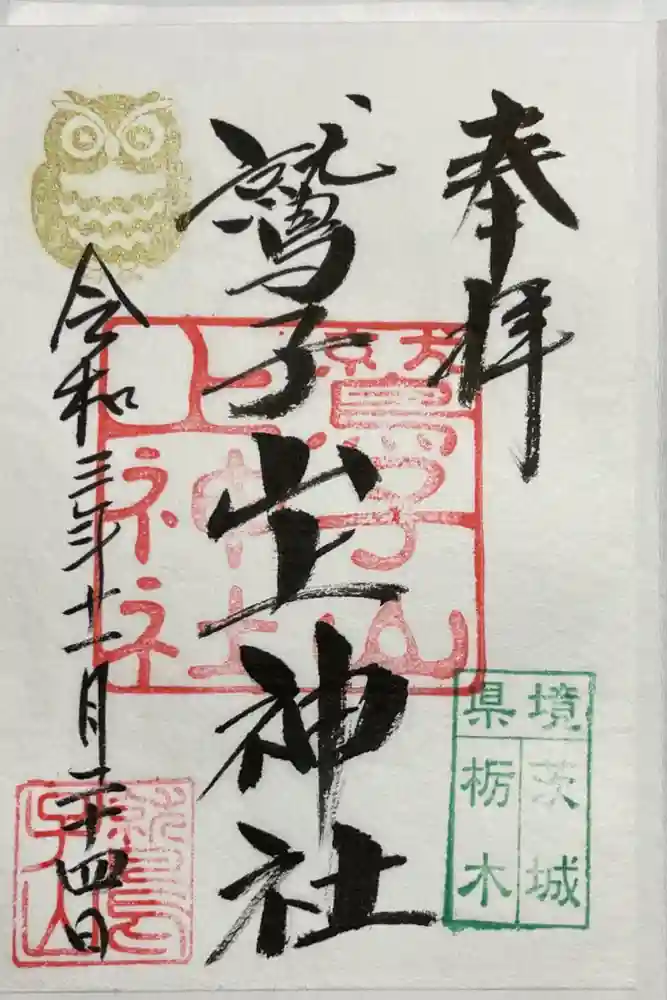 奉拝
鷲子山上神社
令和三年十一月二十四日
鷲子山
上神社
県境
茨城
栃木
鷲子山